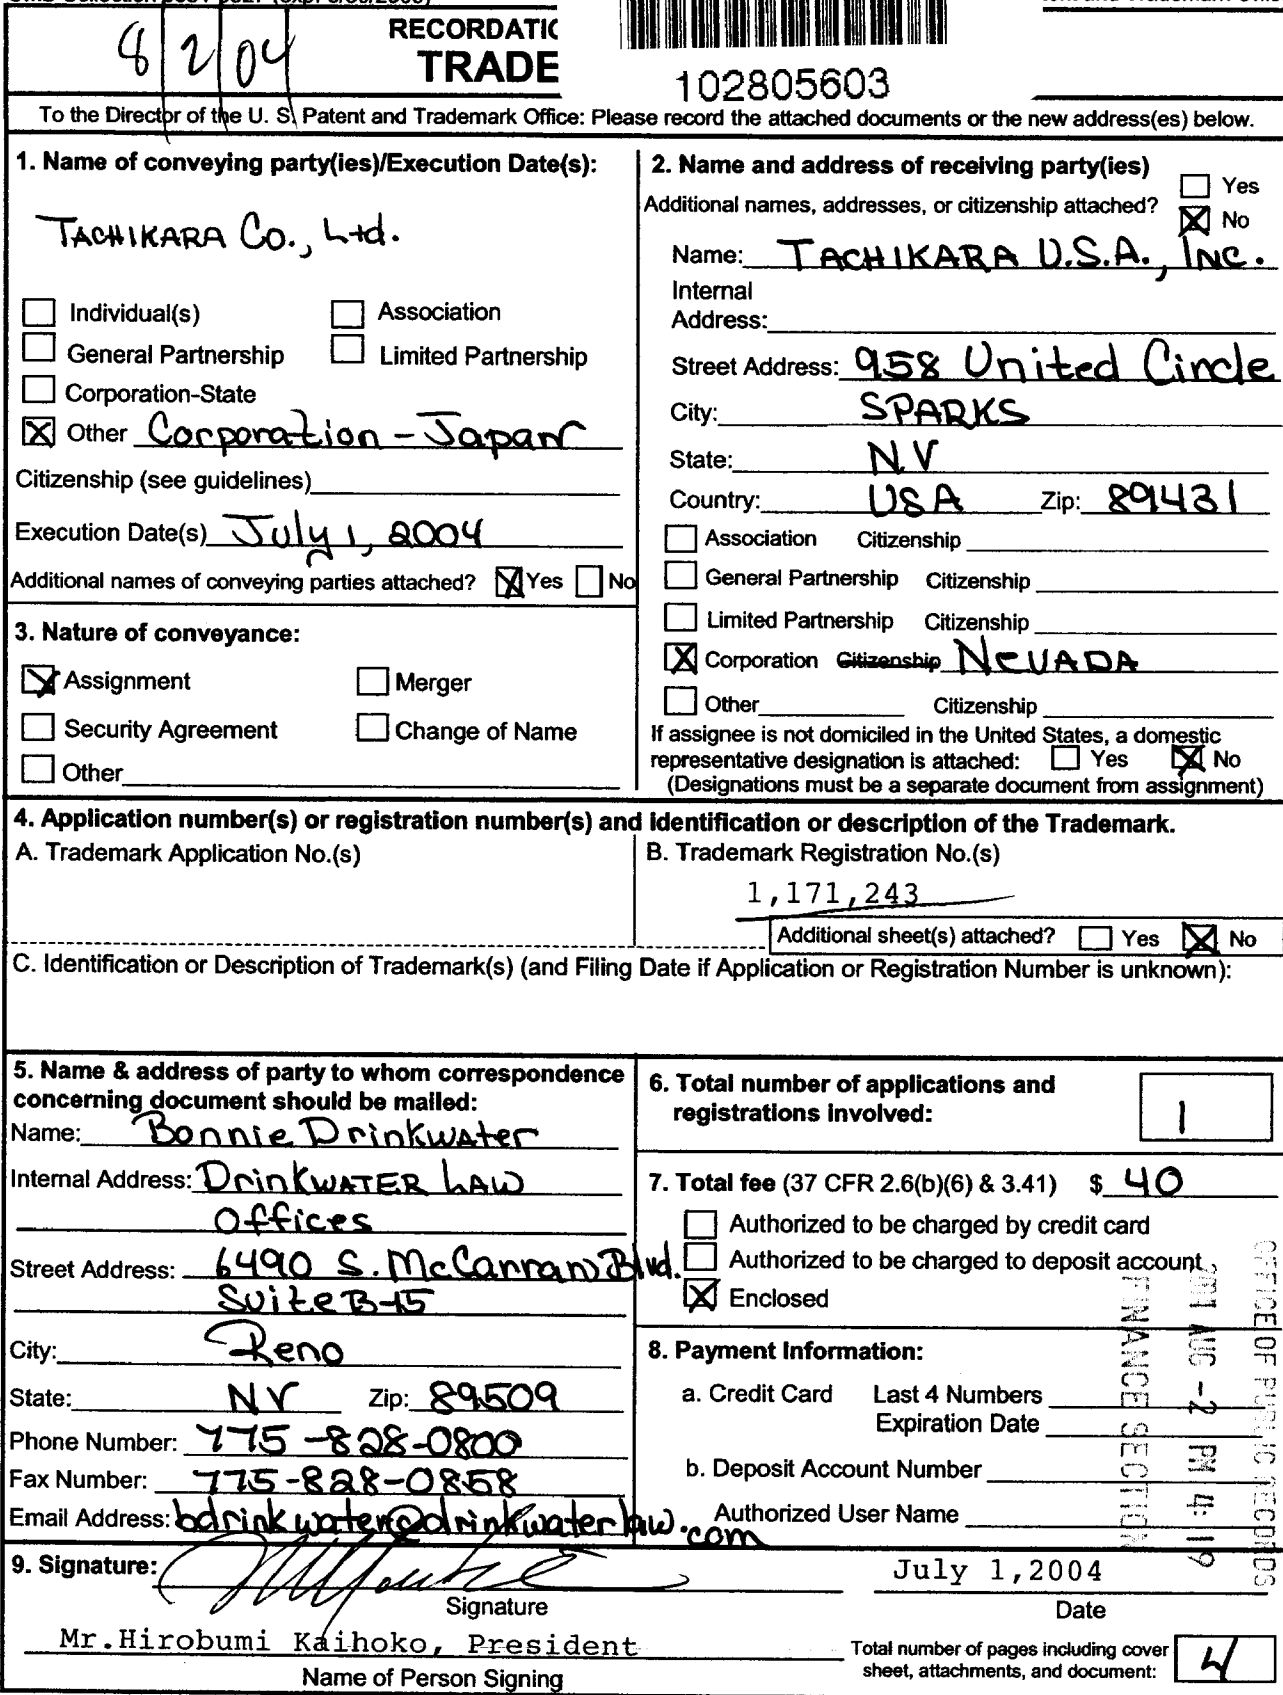 8/2/04
RECORDATIC
TRADE
102805603
To the Director of the U. S. Patent and Trademark Office: Please record the attached documents or the new address(es) below.
1. Name of conveying party(ies)/Execution Date(s):
TACHIKARA Co., Ltd.
Individual(s) Association
General Partnership Limited Partnership
Corporation-State
Other Corporation - Japan
Citizenship (see guidelines)
Execution Date(s) July 1, 2004
Additional names of conveying parties attached? Yes No
2. Name and address of receiving party(ies)
Yes
Additional names, addresses, or citizenship attached?
No
Name: TACHIKARA U.S.A., INC.
Internal
Address:
Street Address: 958 United Circle
City: SPARKS
State: NV
Country: USA Zip: 89431
Association Citizenship
General Partnership Citizenship
Limited Partnership Citizenship
Corporation Citizenship NEVADA
Other Citizenship
If assignee is not domiciled in the United States, a domestic
representative designation is attached: Yes No
(Designations must be a separate document from assignment)
3. Nature of conveyance:
Assignment Merger
Security Agreement Change of Name
Other
4. Application number(s) or registration number(s) and identification or description of the Trademark.
A. Trademark Application No.(s)
B. Trademark Registration No.(s)
1,171,243
Additional sheet(s) attached? Yes No
C. Identification or Description of Trademark(s) (and Filing Date if Application or Registration Number is unknown):
5. Name & address of party to whom correspondence
concerning document should be mailed:
Name: Bonnie Drinkwater
Internal Address: Drinkwater Law
Offices
Street Address: 6490 S. McCarran Blvd.
Suite B-15
City: Reno
State: NV Zip: 89509
Phone Number: 775-828-0800
Fax Number: 775-828-0858
Email Address: bdrinkwater@drinkwaterlaw.com
6. Total number of applications and
registrations involved:
1
7. Total fee (37 CFR 2.6(b)(6) & 3.41) $ 40
Authorized to be charged by credit card
Authorized to be charged to deposit account
Enclosed
8. Payment Information:
a. Credit Card Last 4 Numbers
Expiration Date
b. Deposit Account Number
Authorized User Name
OFFICE OF PUBLIC RECORDS
AUG -2 PM 4:19
FINANCE SECTION
9. Signature:
July 1,2004
Signature
Date
Mr.Hirobumi Kaihoko, President
Name of Person Signing
Total number of pages including cover
sheet, attachments, and document:
4